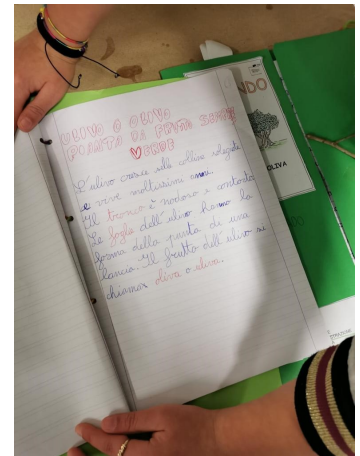 ULIVO O OLIVO
PIANTA DA FRUTTO SEMPRE
VERDE
L'ulivo cresce sulle colline soleggiate
e vive moltissimi anni.
Il tronco è nodoso e contorto
Le foglie dell'ulivo hanno la
forma della punta di una
lancia. Il frutto dell'ulivo si
chiama oliva o uliva.
NDO
OLIVA